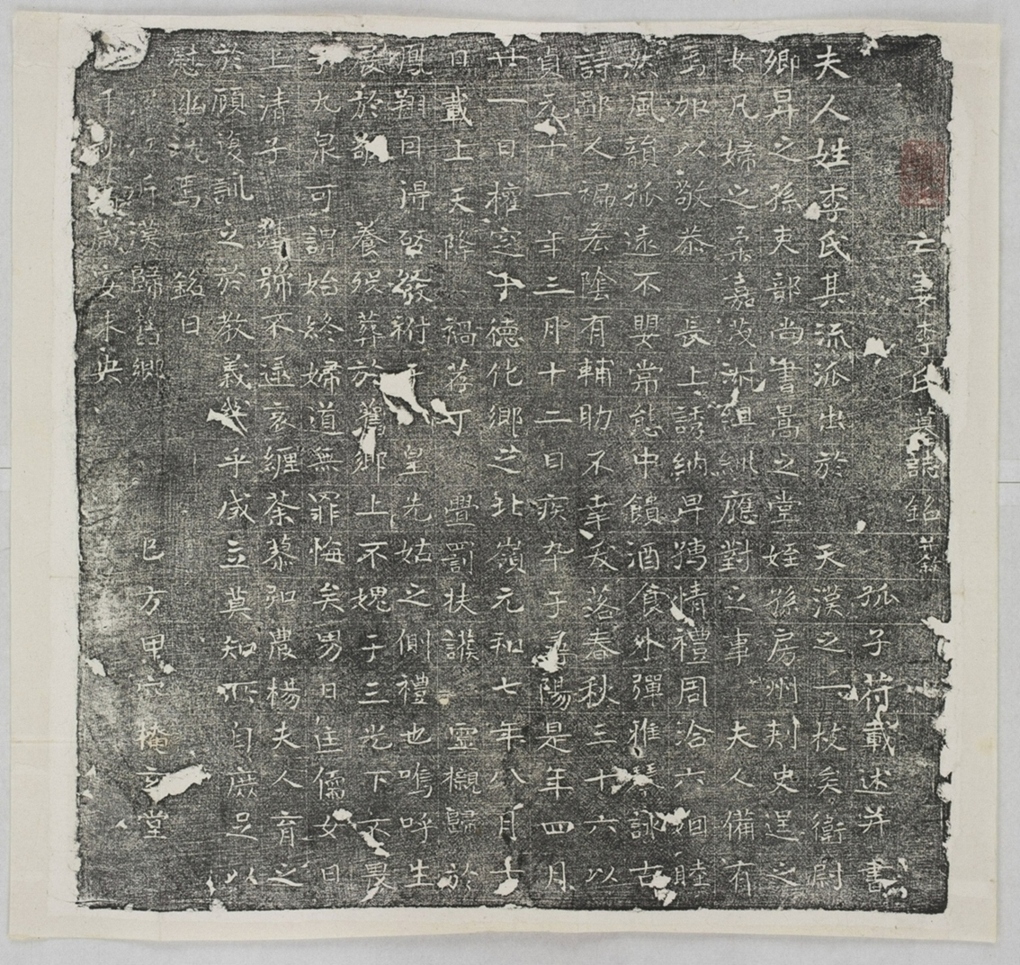 亡妻李氏墓誌銘 并敘
孤子苻載述并書
夫人姓李氏其流派出於 天漢之一枝矣衛尉
卿昇之孫吏部尚書暠之堂姪孫房州刾史逞之
女凡婦之柔嘉茂淑組紃應對之事 夫人備有
焉加以敬恭 長上誘納卑孺情禮周洽六姻睦
然風韻孤遠不嬰常態中饋酒食外彈雅琴詠古
詩鄙人褊吝陰有輔助不幸夭落春秋三十六以
貞元十一年三月十二日疾卒于尋陽是年四月
廿一日權窆于德化鄉之北嶺元和七年八月十
日載上天降 禍荐丁 舋罰扶護 靈櫬歸於
鳳翔因得啓發祔于 皇先姑之側禮也嗚呼生
養於 養殁葬於舊鄉上不媿于三光下不
九泉可謂始終婦道無罪悔矣男曰 儒女曰
上清子 號不逮哀纏荼慕弘農楊夫人育之
於顧復訓之於教義幾乎成立莫知所自庶足以
慰幽沈焉 銘曰
漢歸舊鄉 巳方甲穴 玄堂
歲安未央